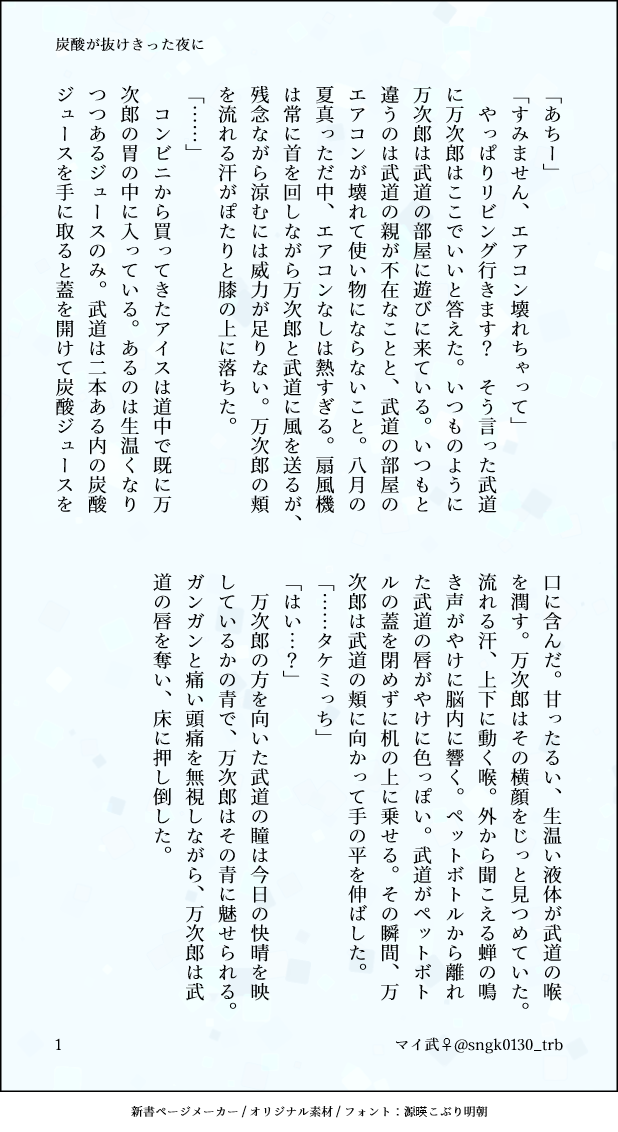 炭酸が抜けきった夜に
「あちー」
「すみません、エアコン壊れちゃって」
　やっぱりリビング行きます？　そう言った武道
に万次郎はここでいいと答えた。いつものように
万次郎は武道の部屋に遊びに来ている。いつもと
違うのは武道の親が不在なことと、武道の部屋の
エアコンが壊れて使い物にならないこと。八月の
夏真っただ中、エアコンなしは熱すぎる。扇風機
は常に首を回しながら万次郎と武道に風を送るが、
残念ながら涼むには威力が足りない。万次郎の頬
を流れる汗がぽたりと膝の上に落ちた。
「……」
　コンビニから買ってきたアイスは道中で既に万
次郎の胃の中に入っている。あるのは生温くなり
つつあるジュースのみ。武道は二本ある内の炭酸
ジュースを手に取ると蓋を開けて炭酸ジュースを
口に含んだ。甘ったるい、生温い液体が武道の喉
を潤す。万次郎はその横顔をじっと見つめていた。
流れる汗、上下に動く喉。外から聞こえる蝉の鳴
き声がやけに脳内に響く。ペットボトルから離れ
た武道の唇がやけに色っぽい。武道がペットボト
ルの蓋を閉めずに机の上に乗せる。その瞬間、万
次郎は武道の頬に向かって手の平を伸ばした。
「……タケミっち」
「はい…？」
　万次郎の方を向いた武道の瞳は今日の快晴を映
しているかの青で、万次郎はその青に魅せられる。
ガンガンと痛い頭痛を無視しながら、万次郎は武
道の唇を奪い、床に押し倒した。
1
マイ武♀@sngk0130_trb
新書ページメーカー / オリジナル素材 / フォント：源暎こぶり明朝